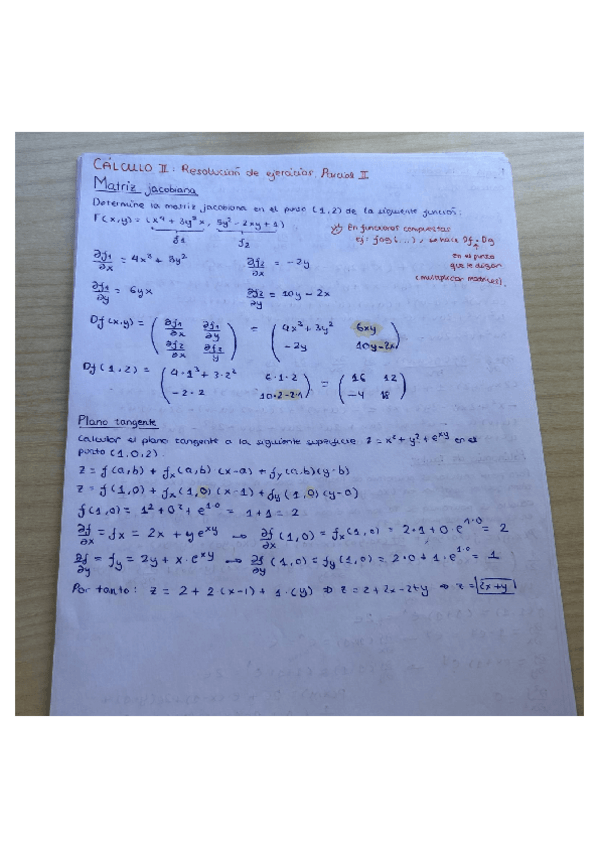 CÁLCULO II: Resolución de ejercicios. Parcial II
Matriz jacobiana
Determine la matriz jacobiana en el punto (1,2) de la siguiente función:
F(x,y) = (x⁴ + 3y²x, 5y² - 2xy + 1)
f1 f2
* En funciones compuestas
ej: fog(...), se hace Df · Dg
en el punto
que te digan
(multiplicar matrices).
∂f1/∂x = 4x³ + 3y² ∂f2/∂x = -2y
∂f1/∂y = 6yx ∂f2/∂y = 10y - 2x
Df(x,y) = (∂f1/∂x ∂f1/∂y ; ∂f2/∂x ∂f2/y) = (4x³ + 3y² 6xy ; -2y 10y-2x)
Df(1,2) = (4·1³ + 3·2² 6·1·2 ; -2·2 10·2-2·1) = (16 12 ; -4 18)
Plano tangente
Calcular el plano tangente a la siguiente superficie z = x² + y² + e^xy en el
punto (1,0,2).
z = f(a,b) + fx(a,b)(x-a) + fy(a,b)(y-b)
z = f(1,0) + fx(1,0)(x-1) + fy(1,0)(y-0)
f(1,0) = 1² + 0² + e^1·0 = 1+1 = 2
∂f/∂x = fx = 2x + y e^xy → ∂f/∂x (1,0) = fx(1,0) = 2·1+0·e^1·0 = 2
∂f/∂y = fy = 2y + x·e^xy → ∂f/∂y (1,0) = fy(1,0) = 2·0 + 1·e^1·0 = 1
Por tanto: z = 2 + 2(x-1) + 1·(y) ⇒ z = 2+2x-2+y ⇒ z = 2x+y